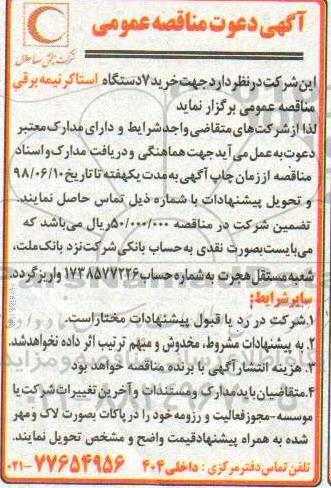 آگهی دعوت مناقصه عمومی
این شرکت در نظر دارد جهت خرید ۷ دستگاه استاکر نیمه برقی
مناقصه عمومی برگزار نماید
لذا از شرکت های متقاضی واجد شرایط و دارای مدارک معتبر
دعوت به عمل می آید جهت هماهنگی و دریافت مدارک و اسناد
مناقصه از زمان چاپ آگهی به مدت یکهفته تا تاریخ ۹۸/۰۶/۱۰
و تحویل پیشنهادات با شماره ذیل تماس حاصل نمایند.
تضمین شرکت در مناقصه ۵۰/۰۰۰/۰۰۰ ریال می باشد که
می بایست بصورت نقدی به حساب بانکی شرکت نزد بانک ملت،
شعبه مستقل هجرت به شماره حساب ۱۷۳۸۵۷۷۲۲۶ واریز گردد.
سایر شرایط:
۱. شرکت در رد یا قبول پیشنهادات مختار است.
۲. به پیشنهادات مشروط، مخدوش و مبهم ترتیب اثر داده نخواهد شد.
۳. هزینه انتشار آگهی با برنده مناقصه خواهد بود
۴. متقاضیان باید مدارک و مستندات و آخرین تغییرات شرکت یا
موسسه - مجوز فعالیت و رزومه خود را در پاکات بصورت لاک و مهر
شده به همراه پیشنهاد قیمت واضح و مشخص تحویل نمایند.
تلفن تماس دفتر مرکزی: داخلی ۴۰۴ ۷۷۶۵۴۹۵۶-۰۲۱